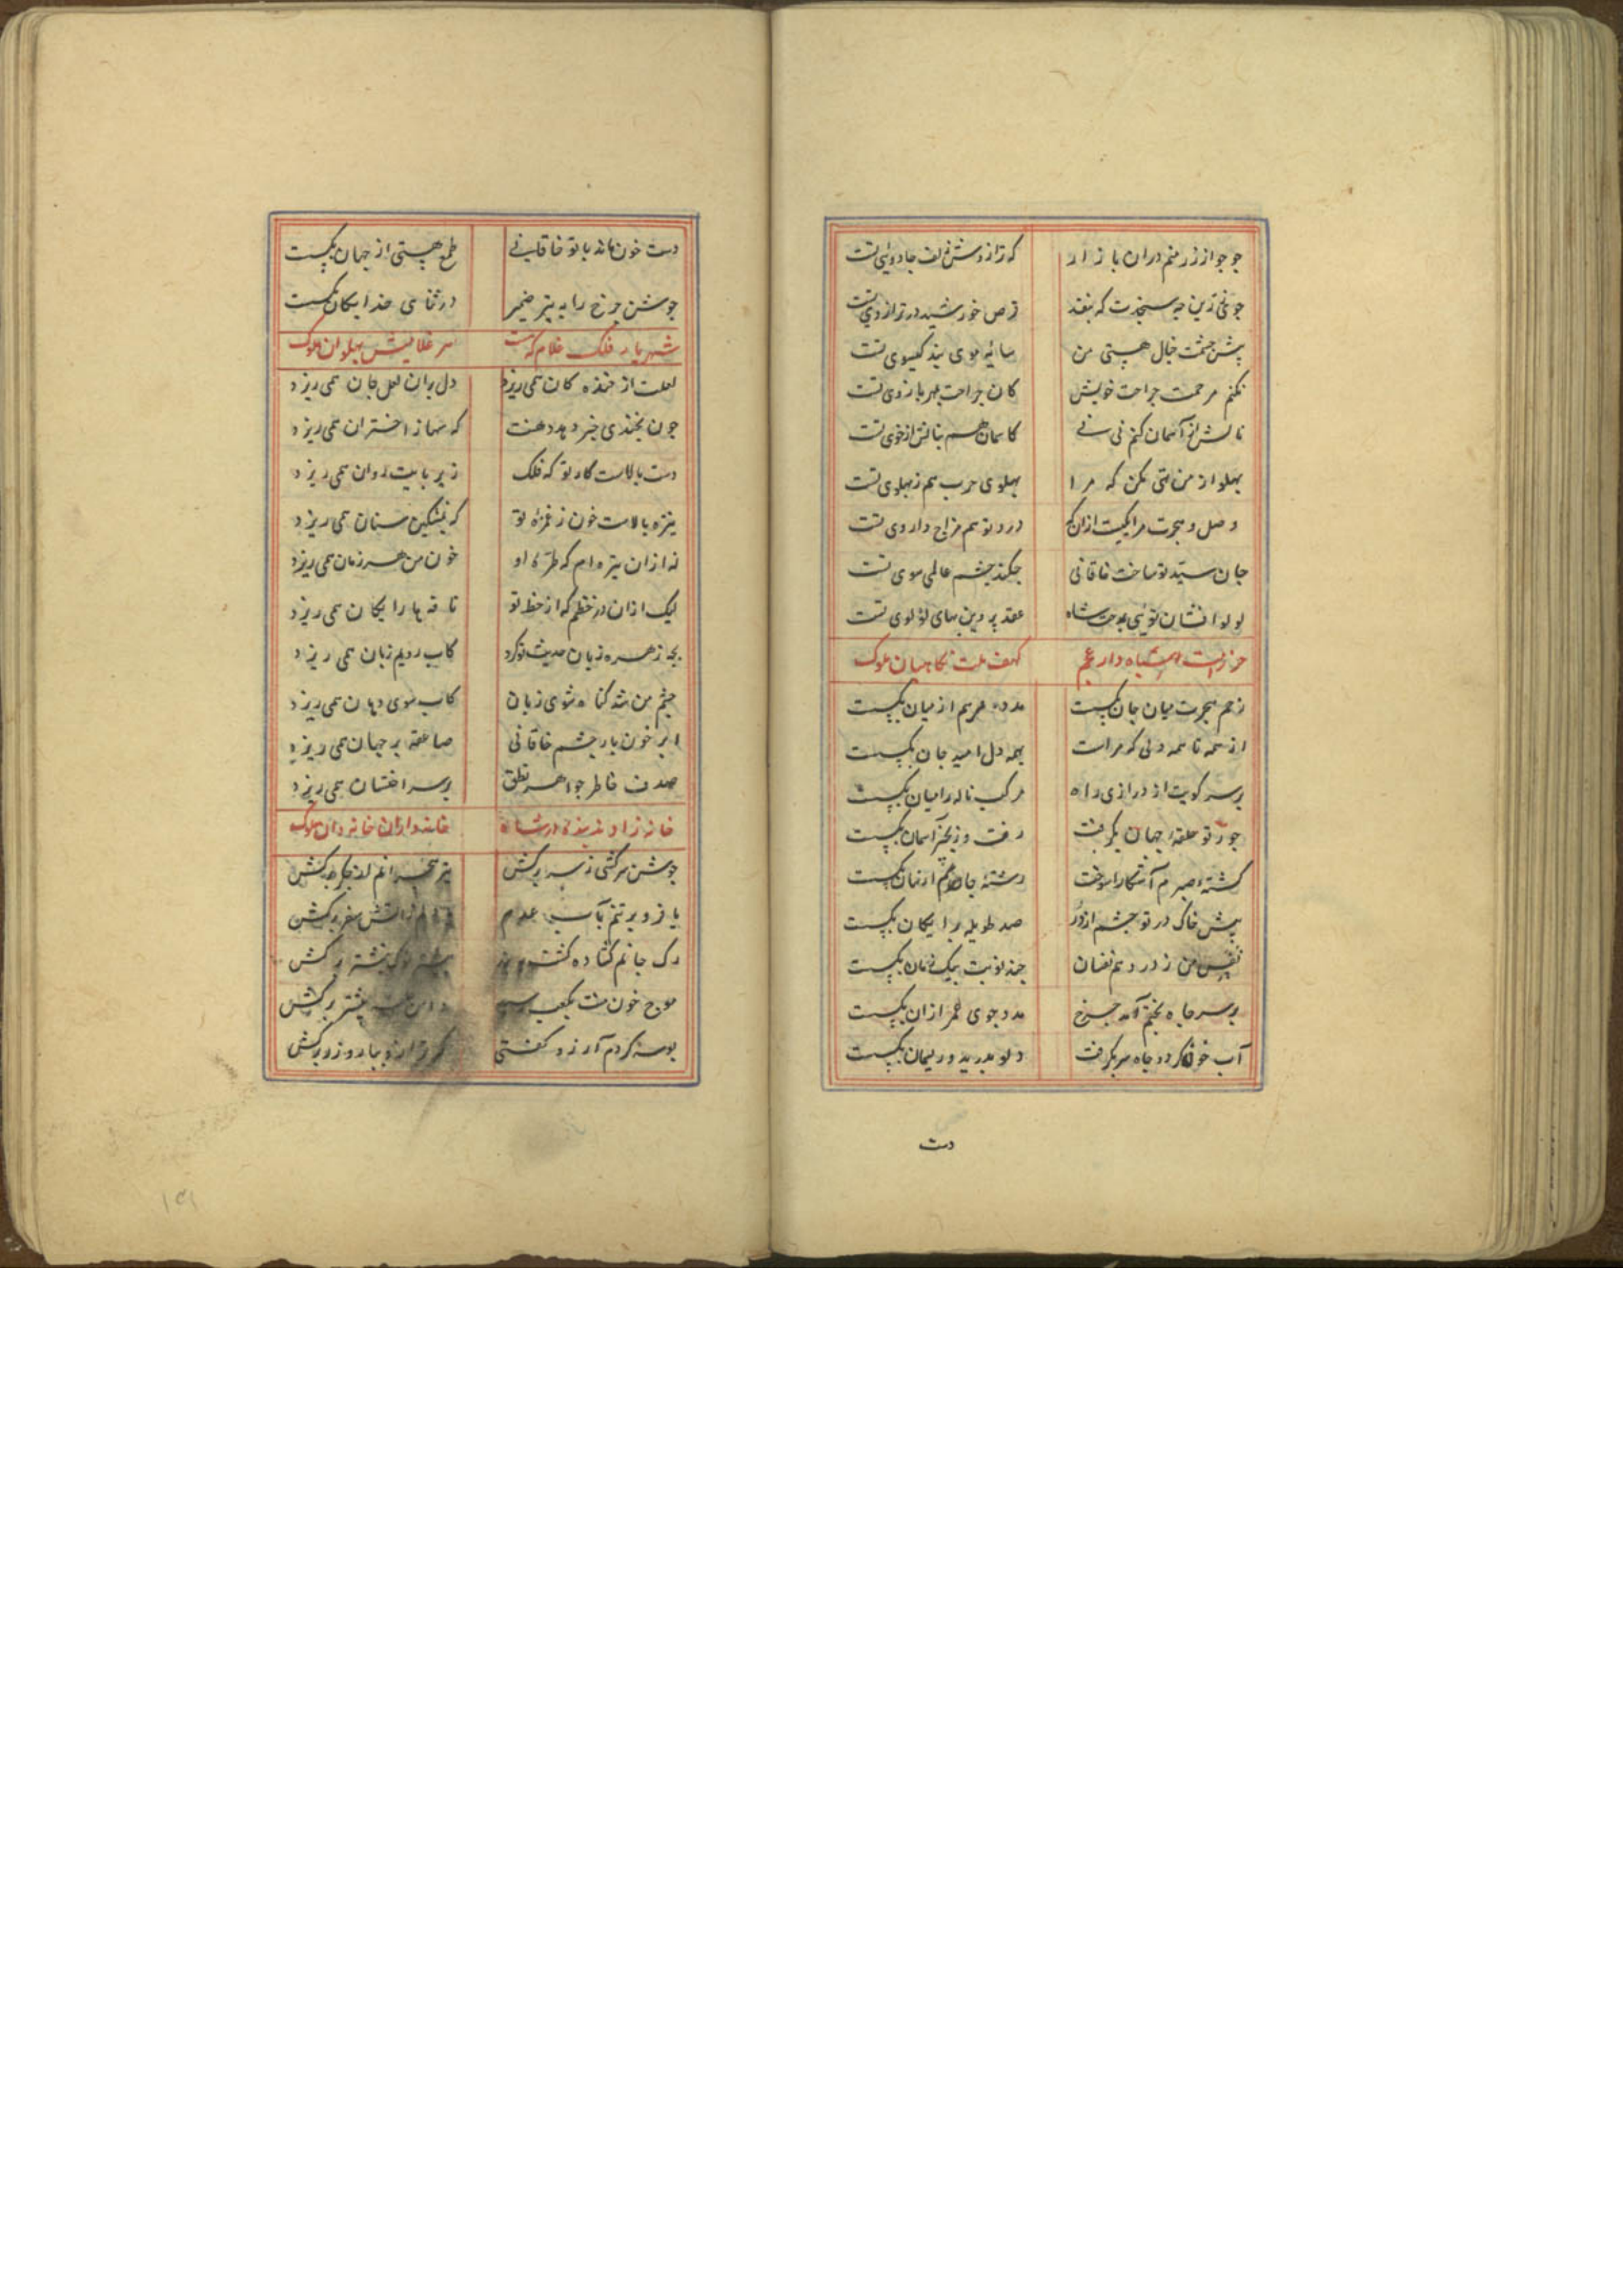 جو جو از زر منم دران بازار که ترازوش زلف جادوی تست
جو بخی زین چه سنجدت که بنقد قرص خورشید در ترازوی تست
پیش چشمت خیال هستی من سایه موی بند گیسوی تست
نکنم مرحمت جراحت خویش کان جراحت بهر بازوی تست
نالش از آسمان کنم نی نی کاسمان هم بنالش از خوی تست
پهلو از من تهی مکن که مرا پهلوی چرب هم ز پهلوی تست
وصل و هجرت مرا یکیست ازان که درد تو هم مزاج داروی تست
جان سپید تو ساخت خاقانی چکند چشم عالمی سوی تست
لولو افشان توئی بمدحت شاه عقد پروین بهای لؤلوی تست
حرز امت شاه دار عجم کهف ملت نگاهبان ملوک
زخم هجرت میان جان بگسست مدد مرهم از میان بگسست
از همه تا همه دلی که مراست همه دل امید جان بگسست
بر سر کویت از درازی راه مرکب ناله را میان بگسست
جور تو حلقه جهان بگرفت رفت و زنجیر آسمان بگسست
کشته صبرم آشکارا سوخت رشته جانم از نهان بگسست
پیش خاک در تو چشم از در صد طویله برایگان بگسست
نفس من ز درد هم نفسان چند نوبت بیک زمان بگسست
بر سر چاه بختم آمد چرخ مدد جوی عمر ازان بگسست
آب خون کرد و چاه سر بگرفت دلو بدرید و ریسمان بگسست
دست
دست خون ماند با تو خاقانی طمع هستی از جهان بگسست
جوشن چرخ را به تیر ضمیر در ثنای خدایگان بگسست
شهریار فلک غلام که هست هر غلامیش پهلوان ملوک
لعلت از خنده کان همی ریزد دل بران لعل جان همی ریزد
چون بخندی خبر دهد دهنت که سها ز اختران همی ریزد
دست بالاست کار تو که فلک زیر پایت روان همی ریزد
نیزه بالاست خون ز غمزه تو که بمشکین سنان همی ریزد
نه ازان تیره ام که طره او خون من هر زمان همی ریزد
لیک ازان در خطم که از خط تو نافه ها رایگان همی ریزد
بچه زهره زبان حدیث تو کرد کاب رویم زبان همی ریزد
چشم من شد گناه شوی زبان کاب سوی دهان همی ریزد
ابر خون بار چشم خاقانی صاعقه بر جهان همی ریزد
صدف خاطر جواهر نطق بر سر اخستان همی ریزد
خانه زاد دارشاه خانداران خاندان ملوک
جوشن سرکشی ز سر برکش تیر هجرانم از جگر برکش
باز و بر تنم بآب عدم برکش
رک جانم کشاده گشت نشتر برکش
موج خون منت بکعب رسید دامن بیشتر برکش
بوسه کردم آرزو گفتی که ترازو بیار و زر برکش